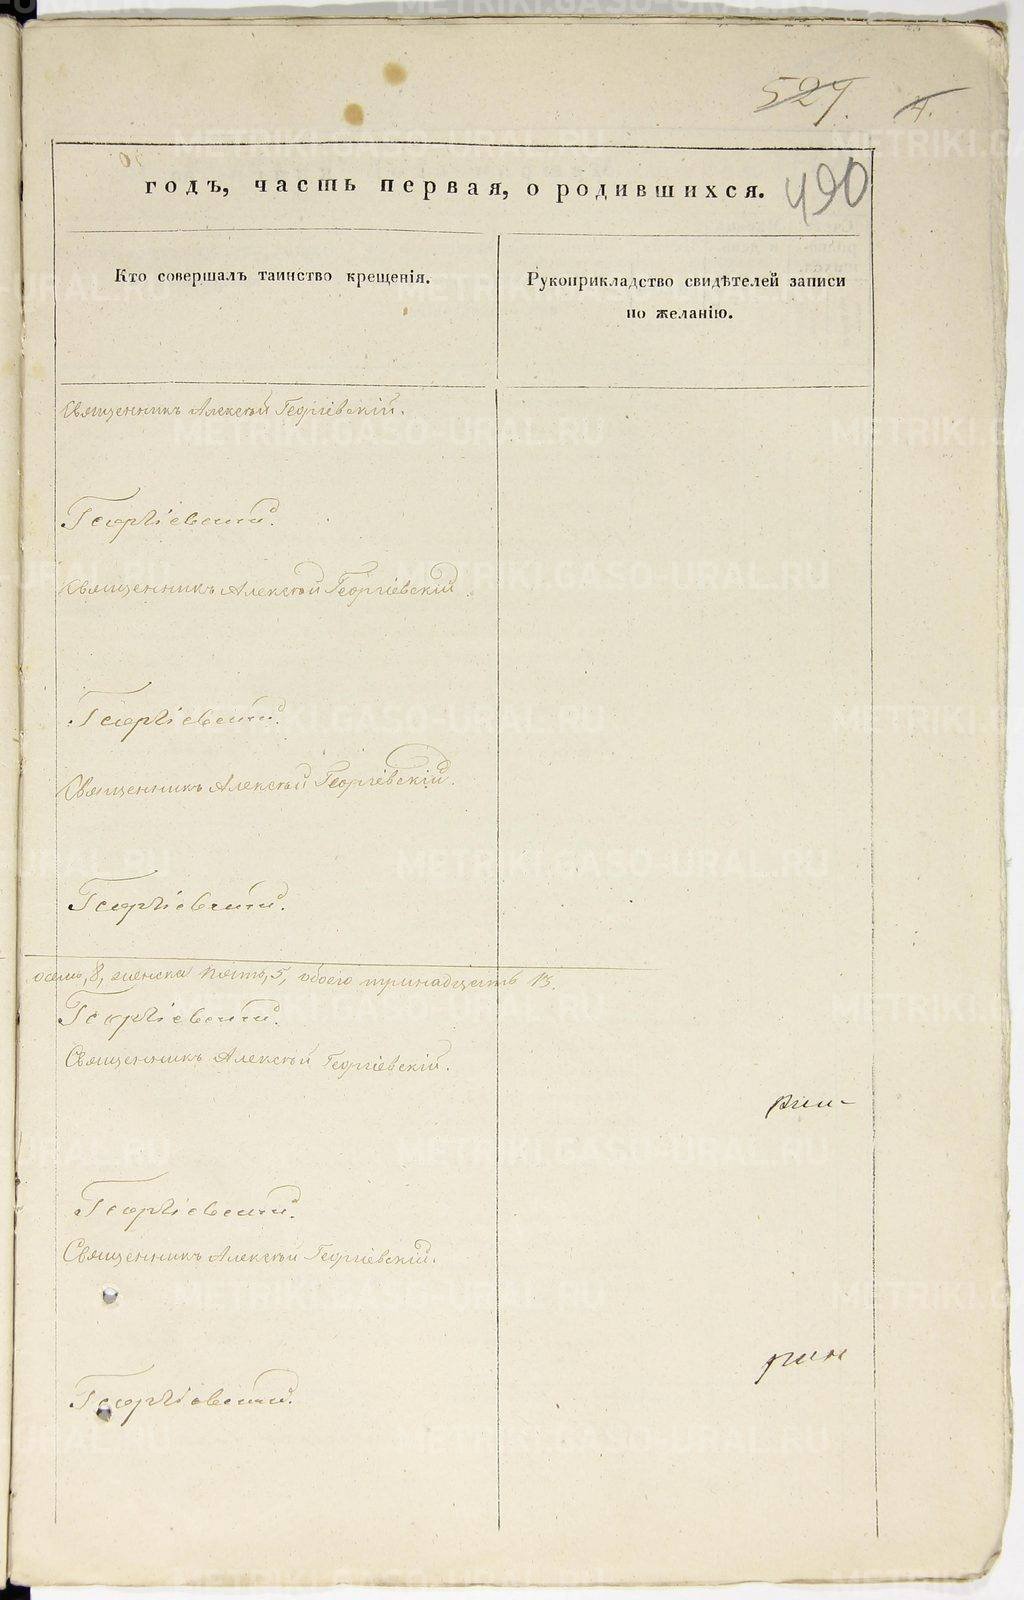 527.
4.
490
годъ, часть первая, о родившихся.
Кто совершалъ таинство крещенія.
Рукоприкладство свидѣтелей записи
по желанію.
Священникъ Алексѣй Георгіевскій.
Георгіевскій.
Священникъ Алексѣй Георгіевскій
Георгіевскій.
Священникъ Алексѣй Георгіевскій.
Георгіевскій.
осемь, 8, женска пять, 5, обоего тринадцать 13.
Георгіевскій.
Священникъ Алексѣй Георгіевскій.
Георгіевскій.
Священникъ Алексѣй Георгіевскій.
Георгіевскій.
METRIKI.GASO-URAL.RU